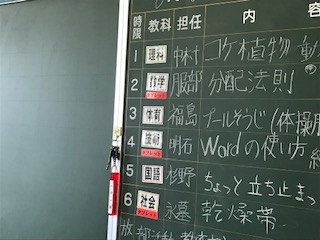 時限 教科 担任 内容
1 理科 中村 コケ植物 動
2 数学 タブレット 服部 分配法則
3 体育 福島 プールそうじ(体操服
4 技術 タブレット 明石 Wordの使い方
5 国語 杉野 ちょっと立ち止まっ
6 社会 タブレット 永墓 乾燥帯
放 部活